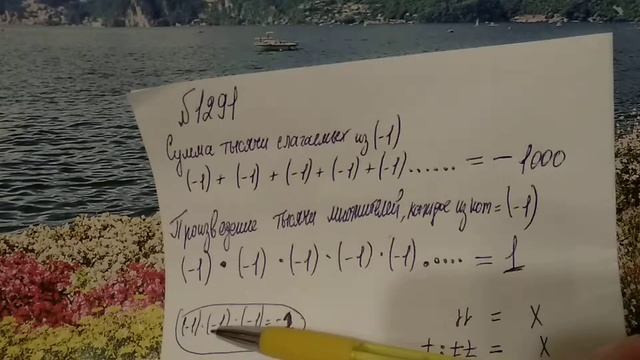 №1291
Сумма тысячи слагаемых из (-1)
(-1) + (-1) + (-1) + (-1) + (-1) ...... = - 1000
Произведение тысячи множителей, каждое из кот = (-1)
(-1) • (-1) • (-1) • (-1) • (-1) ..... = 1
(-1)·(-1)·(-1)= -1
X = 11
X = 77:7